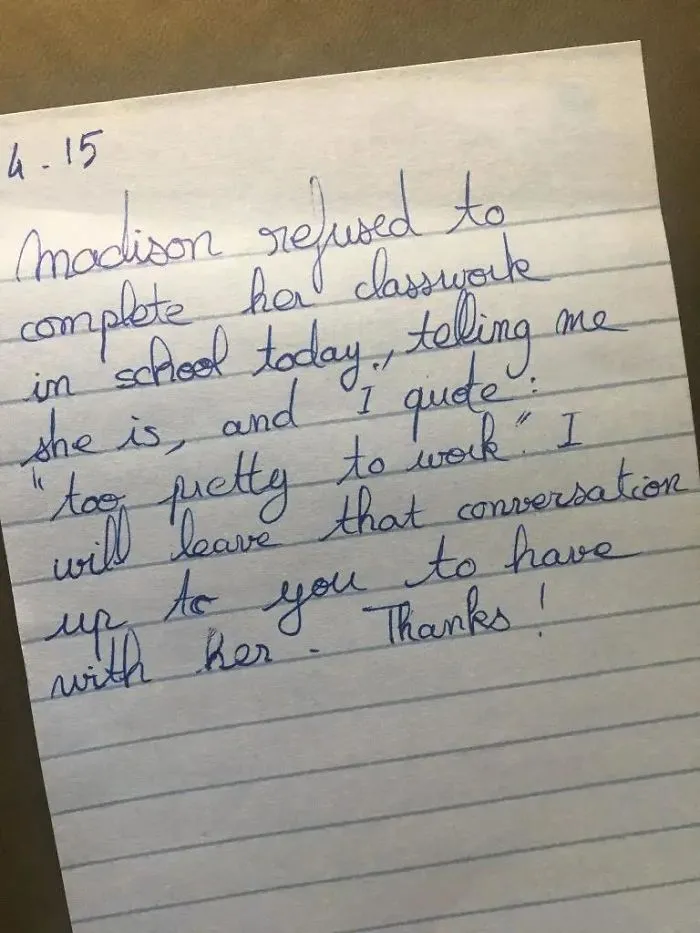 4.15
Madison refused to
complete her classwork
in school today., telling me
she is, and I quote:
"too pretty to work". I
will leave that conversation
up to you to have
with her. Thanks!